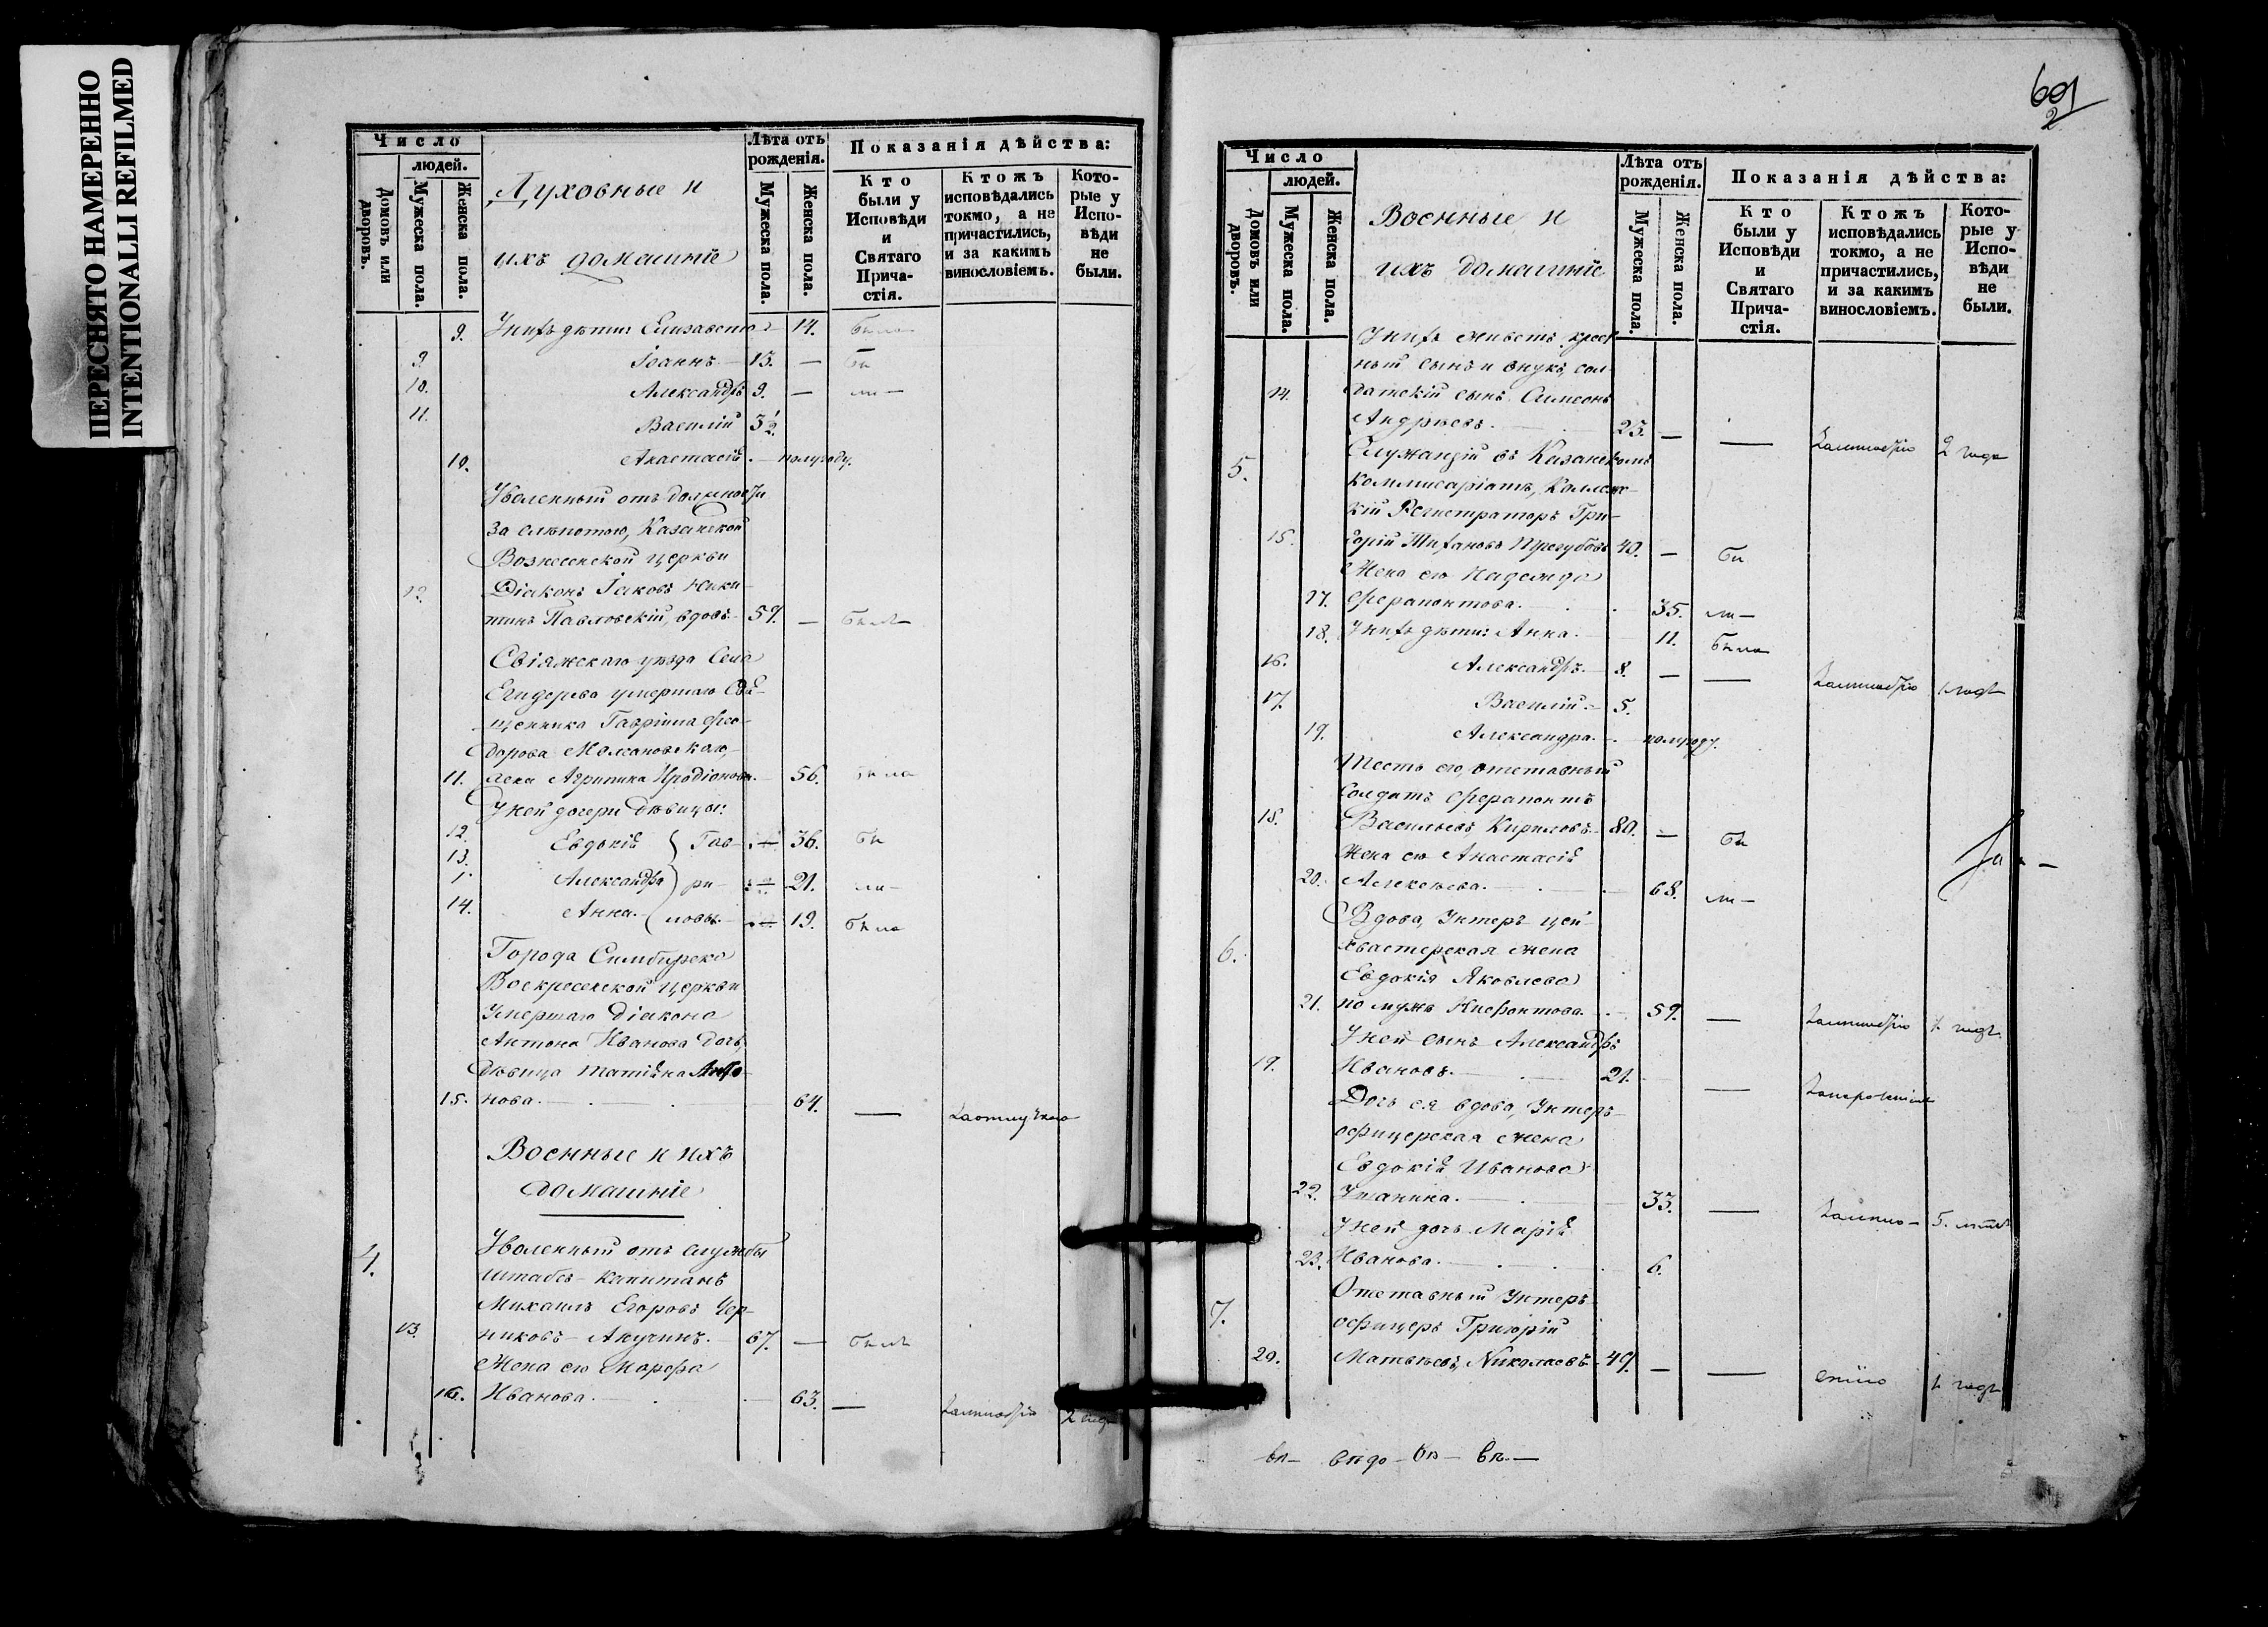 ПЕРЕСНЯТО НАМЕРЕННО
INTENTIONALLI REFILMED
Число
людей.
Домовъ или дворовъ.
Мужеска пола.
Женска пола.
Духовные и
ихъ домашніе
Лѣта отъ рожденія.
Мужеска пола.
Женска пола.
Показанія дѣйства:
Кто были у Исповѣди и Святаго Причастія.
Ктожъ исповѣдались токмо, а не причастились, и за какимъ винословіемъ.
Которые у Исповѣди не были.
9. У нихъ дѣти: Елизавета 14. была
9. Іоаннъ 13. — бы
10. Александръ 9. — ли —
11. Василій 3 1/2.
10. Анастасія — полугоду.
Уволенный отъ должности
за слѣпотою, Казанской
Вознесенской церкви
12. Діаконъ Іаковъ Ники-
тинъ Павловскій, вдовъ 59. — былъ
Свіяжскаго уѣзда Села
умершаго Свя-
щенника Гавріила Ѳео-
дорова
11. жена Агрипина Иродіонова 56. была
У ней дочери дѣвицы:
12. Евдокія Гав- 36. бы
13. Александра ри- 21. ли —
14. Анна ловы 19. была
Города Симбирска
Воскресенской церкви
Умершаго діакона
Антона Иванова дочь,
дѣвица Татіяна Анто-
15. нова. 64. —
Военные и ихъ
домашніе
4. Уволенный отъ службы
штабсъ-капитанъ
Михаилъ Егоровъ Чер-
13. никовъ-Анучинъ. 67. — былъ
Жена его Марфа
16. Иванова. 63. — 2 года
601
2
Число
людей.
Домовъ или дворовъ.
Мужеска пола.
Женска пола.
Военные и
ихъ домашніе
Лѣта отъ рожденія.
Мужеска пола.
Женска пола.
Показанія дѣйства:
Кто были у Исповѣди и Святаго Причастія.
Ктожъ исповѣдались токмо, а не причастились, и за какимъ винословіемъ.
Которые у Исповѣди не были.
У нихъ
ный сынъ и внукъ, сол-
14. датскій сынъ Симеонъ
Андреевъ. 25. — — 2 года
5. Служащій въ Казанскомъ
коммисаріатѣ, Коллеж-
кій Регистраторъ Гри-
15. горій 40. — бы
Жена его Надежда
17. Ѳерапонтова. 35. ли —
18. У нихъ дѣти: Анна. 11. была
16. Александръ. 8. — — 1 годъ
17. Василій. 5.
19. Александра. полугоду.
Тесть его, отставный
Солдатъ Ѳерапонтъ
18. Васильевъ Кириловъ. 80. — бы
Жена его Анастасія
20. Алексѣева. 68. ли —
6. Вдова, Унтеръ цей-
хвастерская жена
Евдокія Яковлева
21. по мужѣ Ксефонтова. 59. — 1 годъ
У ней сынъ Александръ
19. Ивановъ. 21. —
Дочь ея вдова, Унтеръ-
офицерская жена
Евдокія Иванова
22. 33. — 5. лѣтъ
У ней дочь Марія
23. Иванова. 6.
7. Отставный Унтеръ-
офицеръ Григорій
20. Матвѣевъ Николаевъ. 49. — — 1 годъ